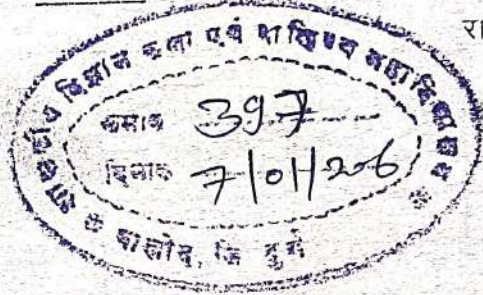 शासकीय विज्ञान कला एवं वाणिज्य महाविद्यालय
क्रमांक 397
दिनांक 7/01/206
पालोद, जि दुर्ग
रा